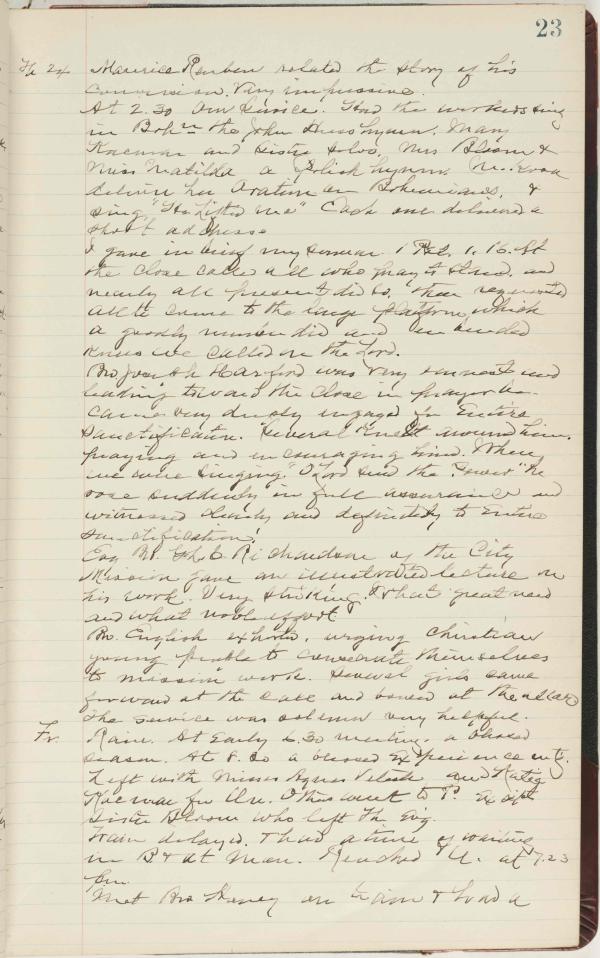 23
Th 24 Maurice Reuben related the story of his
conversion. Very impressive.
At 2.30 Our Service. Had the workers sing
in Bohn the John Huss hymn. Mary
Kocman and Sister Solos, Mrs Bloom &
Miss Matilda a Polish hymn.
deliver her Oration on Bohemians, &
sing, "He Lifted me" Each one delivered a
short address
I gave in brief my sermon 1 Pet. 1, 16. At
the close called all who pray to stand, and
nearly all present did so, then requested
all to come to the large platform which
a goodly number did and on bended
knees we called on the Lord.
Bro Joseph Harford was very earnest and
leading toward the close in prayer be-
came very deeply engaged for Entire
Sanctification. Several Knelt around him,
praying and encouraging him. When
we were singing "O Lord send the Power" he
rose suddenly in full assurance and
witnessed clearly and definitely to Entire
Sanctification!
Richardson of the City
Mission gave an illustrated lecture on
his work. Very striking! What great need
and what noble effort
Bro. English exhorts, urging Christian
young people to consecrate themselves
to mission work. Several girls came
forward at the call and bowed at the altar
The service was solemn very helpful.
Fr. Rain. At Early 6.30 meeting, a blessed
season. At 8.30 a blessed Experience mtg.
Left with Misses Agnes and
Kocman for Others went to P. Except
Sister Bloom who left Th Evg.
Train delayed. & had a time of waiting
in B & at Man. Reached U. at 7.23
pm.
Met Bro Haney on train & had a